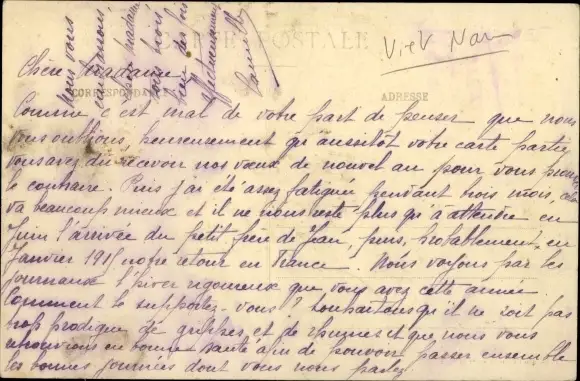 CARTE POSTALE
Viet Nam
CORRESPONDANCE
ADRESSE
Chère Madame
Comme c'est mal de votre part de penser que nous
vous oublions, heureusement qu'aussitôt votre carte partie
vous avez dû recevoir nos vœux de nouvel an pour vous prouver
le contraire. Puis j'ai été assez fatiguée pendant trois mois, cela
va beaucoup mieux et il ne nous reste plus qu'à attendre en
Juin l'arrivée du petit frère de Jean, puis, probablement, en
Janvier 1915 notre retour en France. Nous voyons par les
journaux l'hiver rigoureux que vous avez cette année.
Comment le supportez-vous? Souhaitons qu'il ne soit pas
trop prodigue de grippes et de rhumes et que nous vous
retrouvions en bonne santé afin de pouvoir passer ensemble
les bonnes journées dont vous nous parlez
Nous vous
embrassons
chère madame
bien des fois
affectueusement